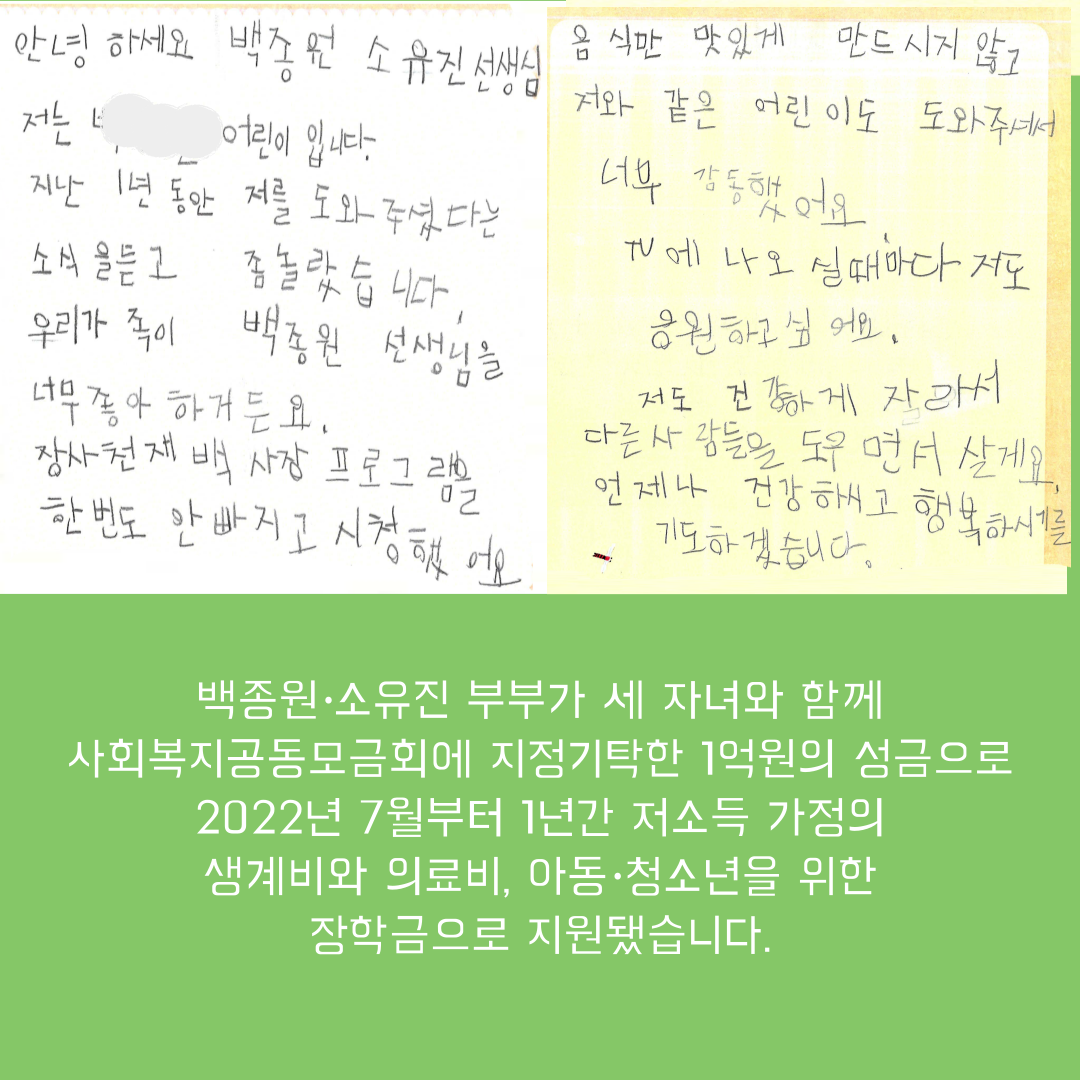 안녕 하세요 백종원 소유진선생님
저는 어린이 입니다.
지난 1년 동안 저를 도와주셨다는
소식을듣고 좀놀랐습니다.
우리가족이 백종원 선생님을
너무좋아하거든요.
장사천재백사장 프로그램을
한번도 안빠지고 시청했어요
음식만 맛있게 만드시지않고
저와 같은 어린이도 도와주셔서
너무 감동했어요
TV에 나오실때마다 저도
응원하고싶어요.
저도 건강하게 잘라서
다른사람들을 도우면서 살게요.
언제나 건강하시고 행복하시기를
기도하겠습니다.
백종원·소유진 부부가 세 자녀와 함께
사회복지공동모금회에 지정기탁한 1억원의 성금으로
2022년 7월부터 1년간 저소득 가정의
생계비와 의료비, 아동·청소년을 위한
장학금으로 지원됐습니다.